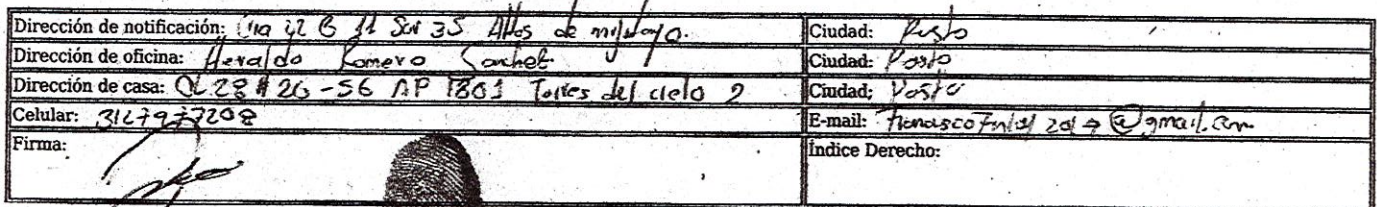 Dirección de notificación: Cra 42 B 11 Sur 35 Altos de
Ciudad: Pasto
Dirección de oficina: Heraldo Romero Sanchez
Ciudad: Pasto
Dirección de casa: CL 28 # 20-56 AP 1801 Torres del cielo 2
Ciudad: Pasto
Celular: 3127977208
E-mail: @gmail.com
Firma:
Índice Derecho: